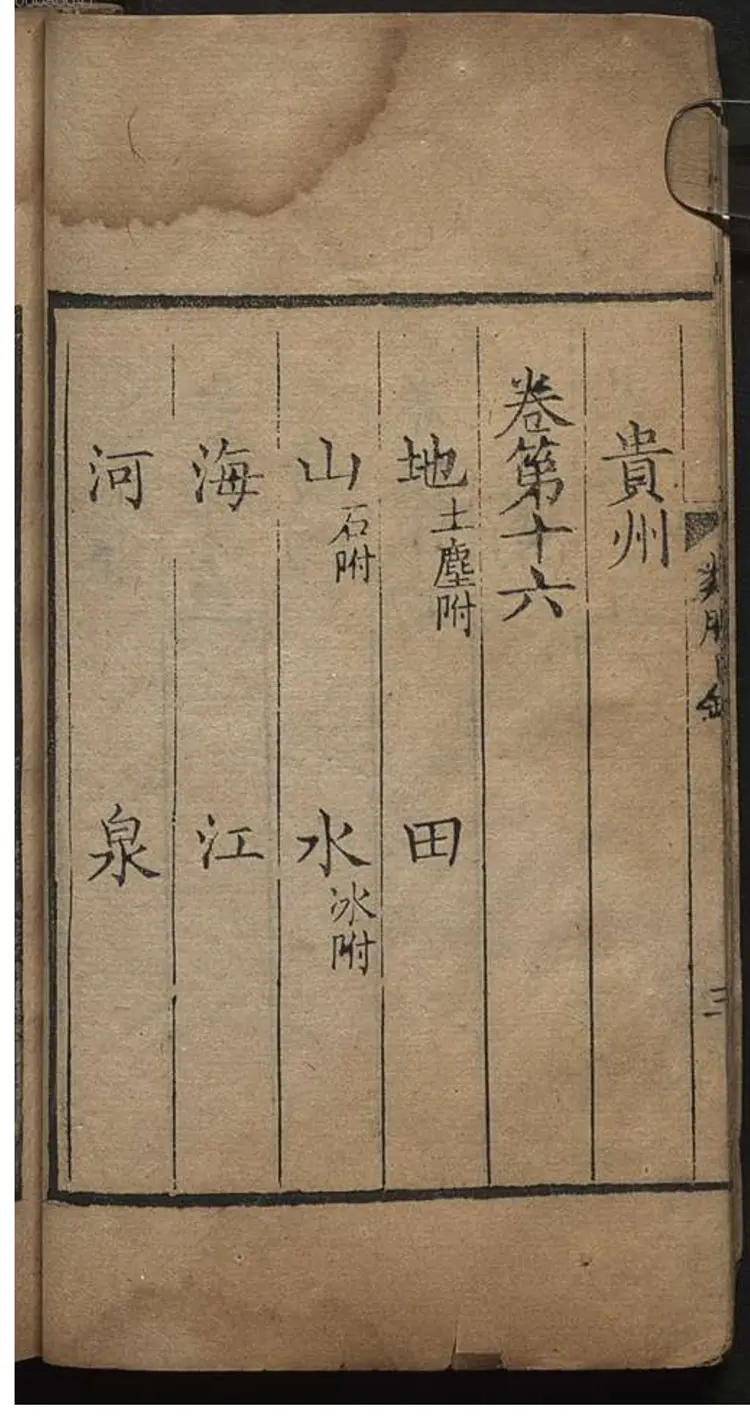 貴州
卷第十六
地 土塵附 田
山 石附 水 冰附
海 江
河 泉